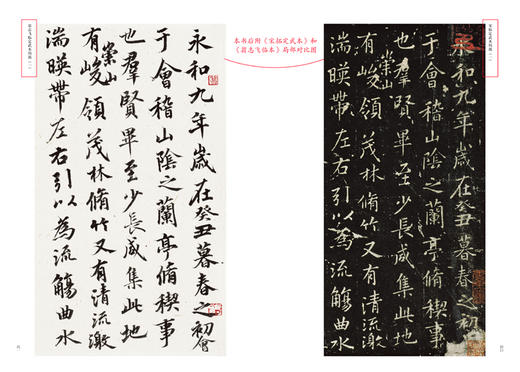 本书后附《宋拓定武本》和
《翁志飞临本》局部对比图
永和九年歲在癸丑暮春之初會
于會稽山陰之蘭亭脩稧事
也羣賢畢至少長咸集此地
有崇山峻領茂林脩竹又有清流激
湍暎帶左右引以為流觴曲水
永和九年歲在癸丑暮春之初會
于會稽山陰之蘭亭脩稧事
也羣賢畢至少長咸集此地
有崇山峻領茂林脩竹又有清流激
湍暎帶左右引以為流觴曲水